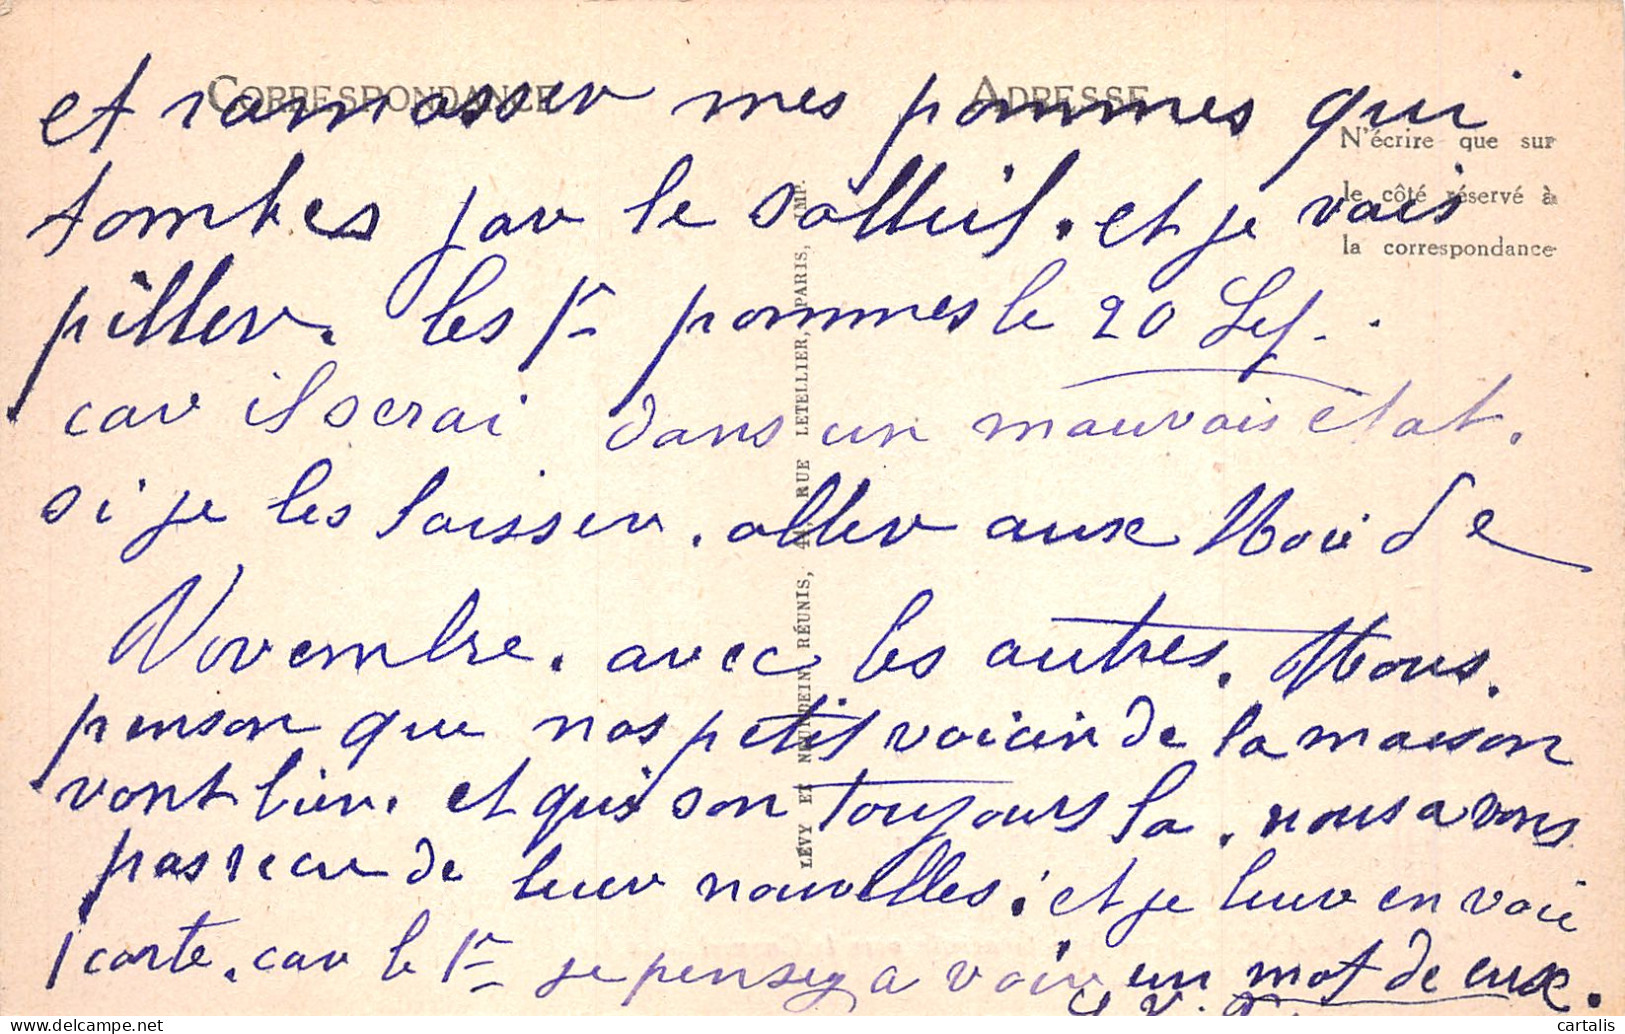 CORRESPONDANCE
ADRESSE
N'écrire que sur
le côté réservé à
la correspondance
LÉVY ET NEURDEIN RÉUNIS, 44, RUE LETELLIER, PARIS, IMP.
et ramasser mes pommes qui
tombes par le solleil. et je vais
piller. les 1r pommes le 20 Sep.
car il serai dans un mauvais etat.
si je les laisser. aller aux Moi de
Novembre. avec les autres. Nous.
penson que nos petit voicin de la maison
vont bien. et qui son toujours la. nous avons
pas recu de leur nouvelles. et je leur envoie
1 carte. car le 1r je pensez a voir un mot de eux.
cartalis
www.delcampe.net